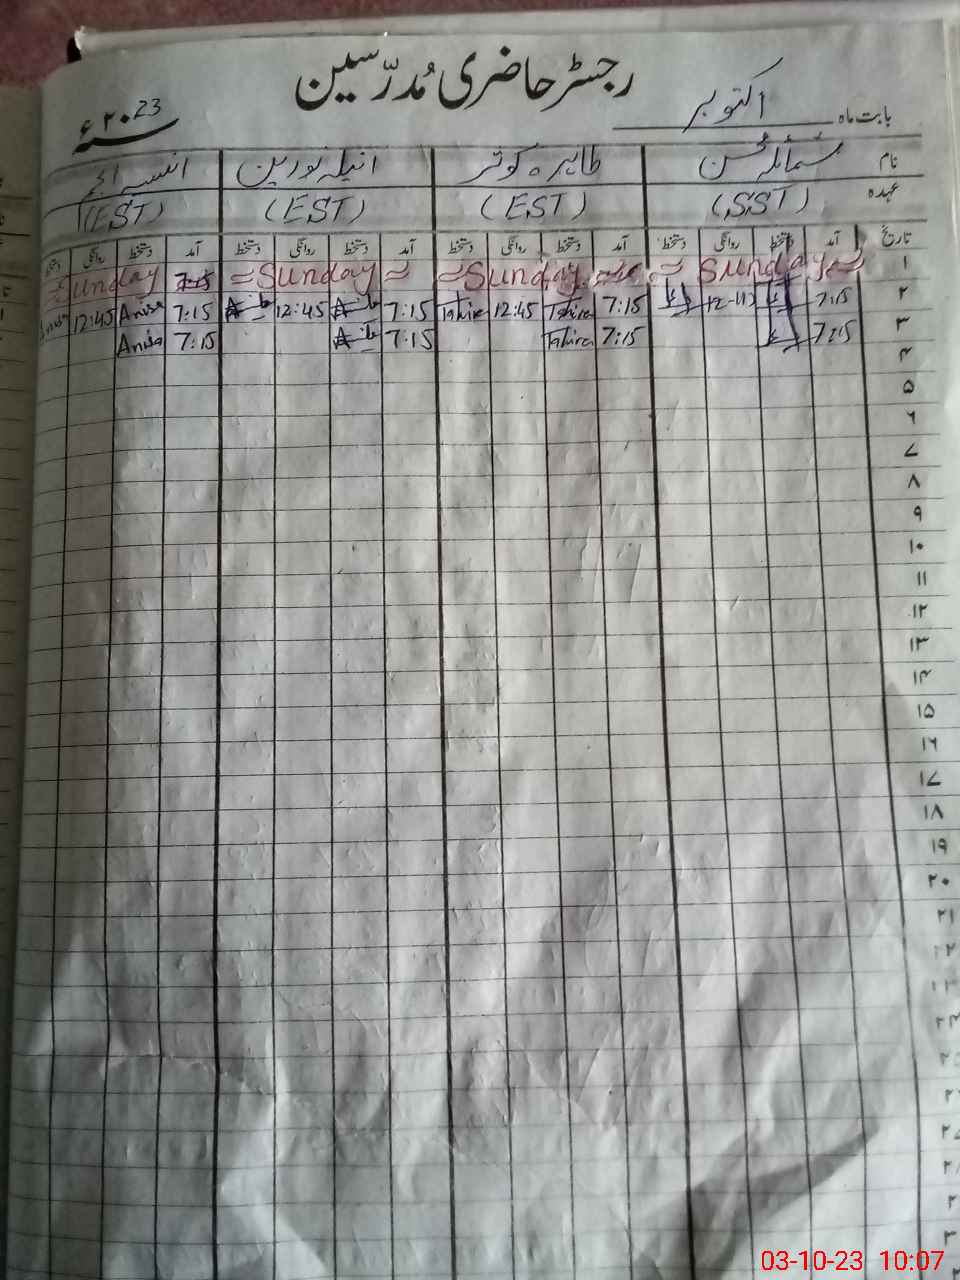 رجسٹر حاضری مُدرّسین
بابت ماہ اکتوبر ۲۰23ء
نام شمائلہ طاہرہ کوثر انیلہ نورین انیسہ انجم
عہدہ (SST) (EST) (EST) (EST)
تاریخ آمد دستخط روانگی دستخط آمد دستخط روانگی دستخط آمد دستخط روانگی دستخط آمد دستخط روانگی دستخط
۱ Sunday Sunday Sunday Sunday 7:15
۲ 7:15 7:15 Tahira 12:45 Tahira 7:15 12:45 7:15 Anisa 12:45 Anisa
۳ 7:15 7:15 Tahira 7:15 7:15 Anisa
۴
۵
۶
۷
۸
۹
۱۰
۱۱
۱۲
۱۳
۱۴
۱۵
۱۶
۱۷
۱۸
۱۹
۲۰
۲۱
۲۲
03-10-23 10:07